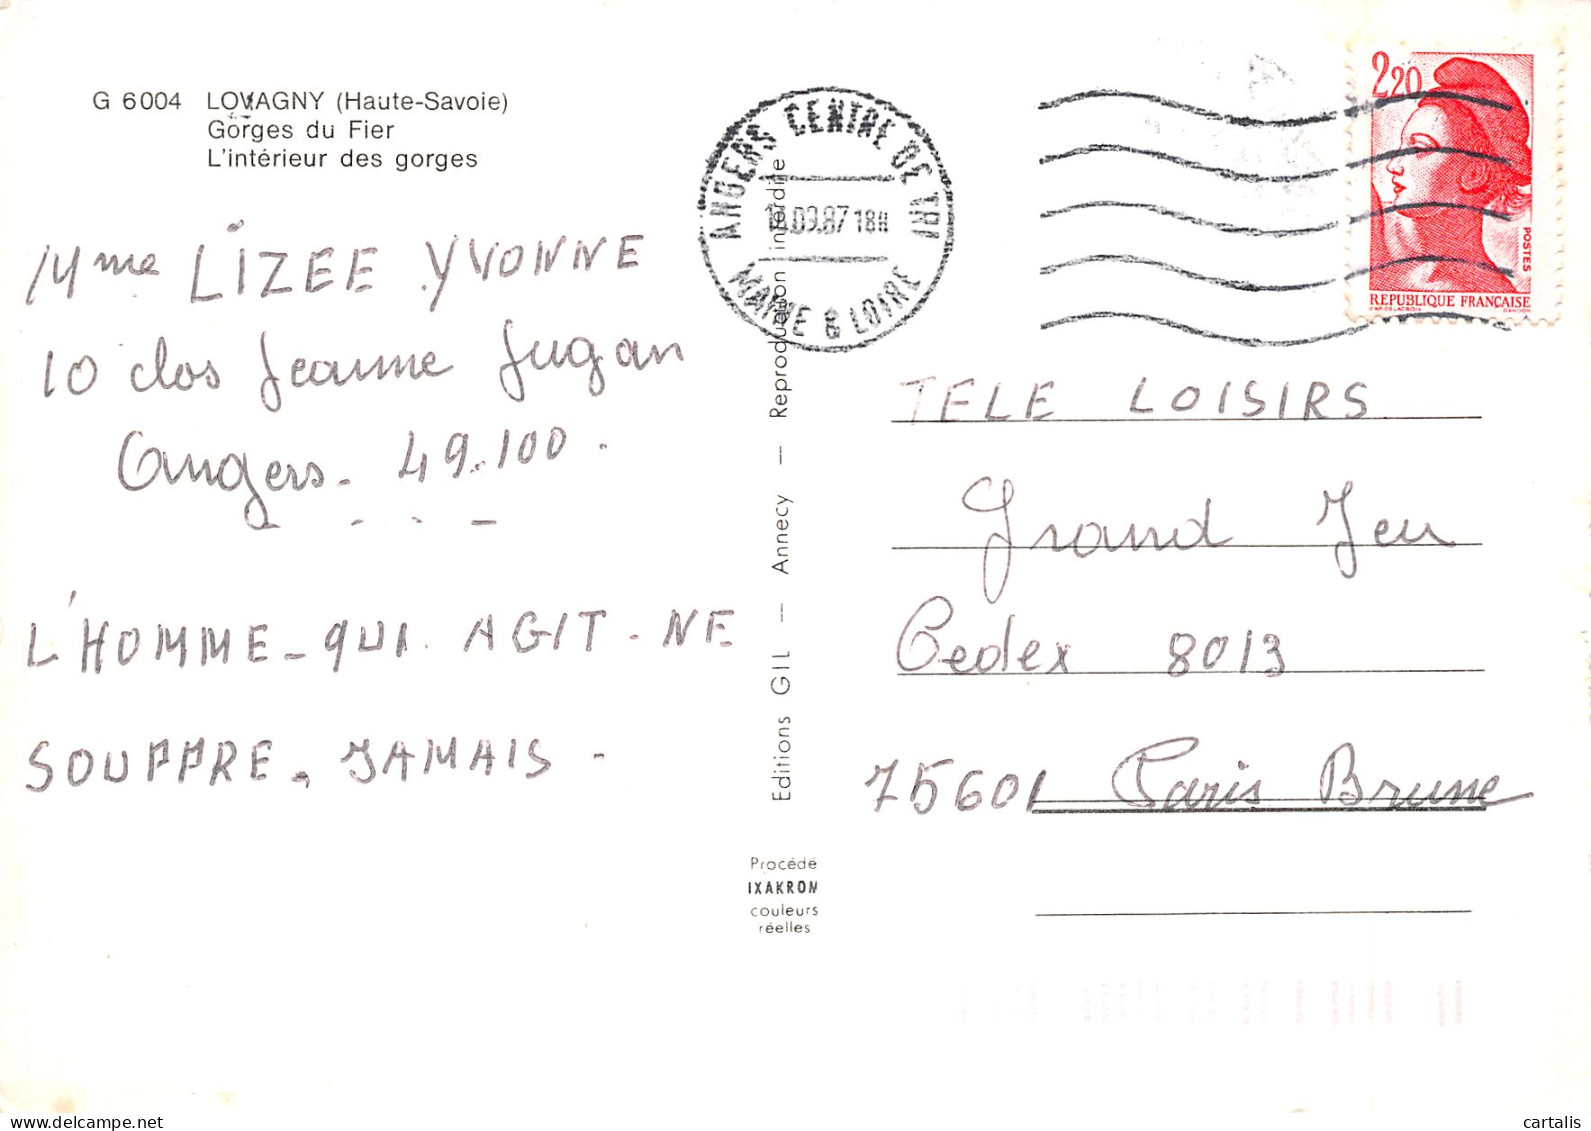 G 6004 LOVAGNY (Haute-Savoie)
Gorges du Fier
L'intérieur des gorges
Mme LIZEE YVONNE
10 clos Jeanne Jugan
Angers - 49.100.
L'HOMME - QUI. AGIT - NE
SOUFFRE, JAMAIS -
ANGERS CENTRE DE TRI
.09.87 18H
MAINE & LOIRE
Editions GIL — Annecy — Reproduction interdite
Procédé
IXAKRON
couleurs
réelles
2,20
POSTES
REPUBLIQUE FRANÇAISE
D'AP. DELACROIX GANDON
TELE LOISIRS
Grand Jeu
Cedex 8013
75601 Paris Brune
cartalis